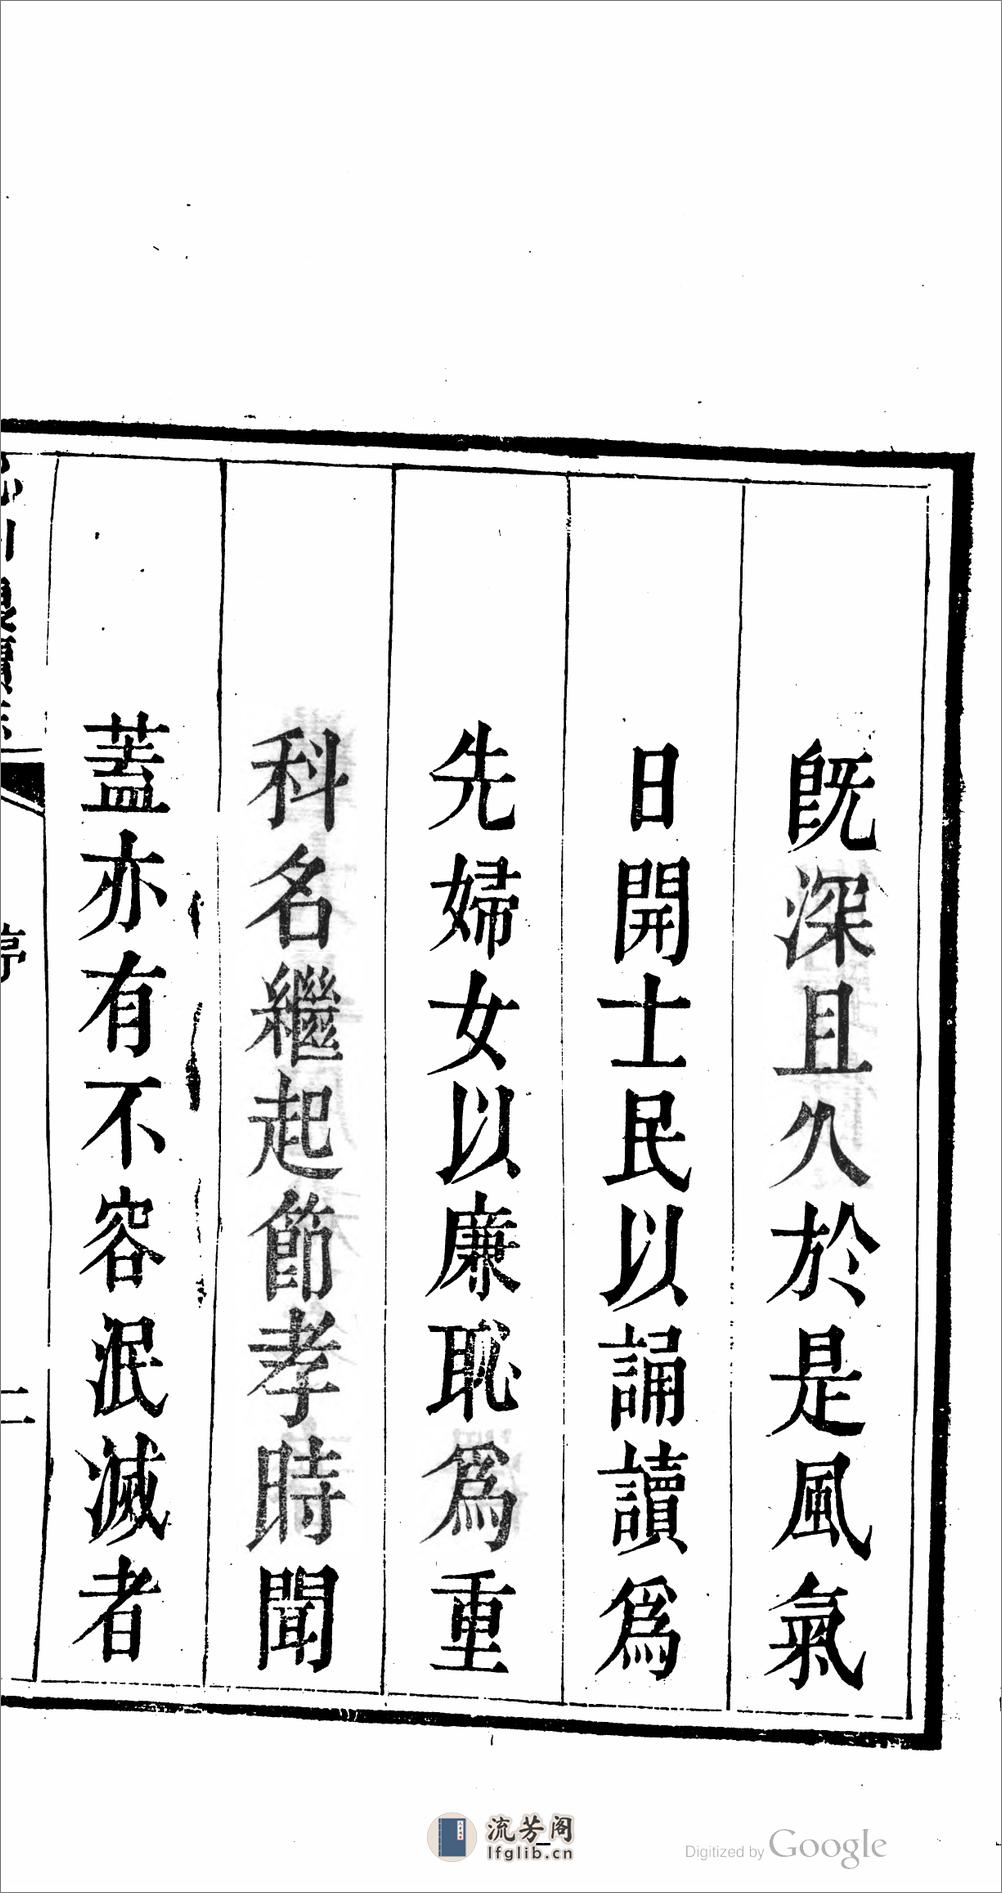 既深且久於是風氣
日開士民以誦讀爲
先婦女以廉恥爲重
科名繼起節孝時聞
蓋亦有不容泯滅者
二
流芳阁
lfglib.cn
Digitized by Google